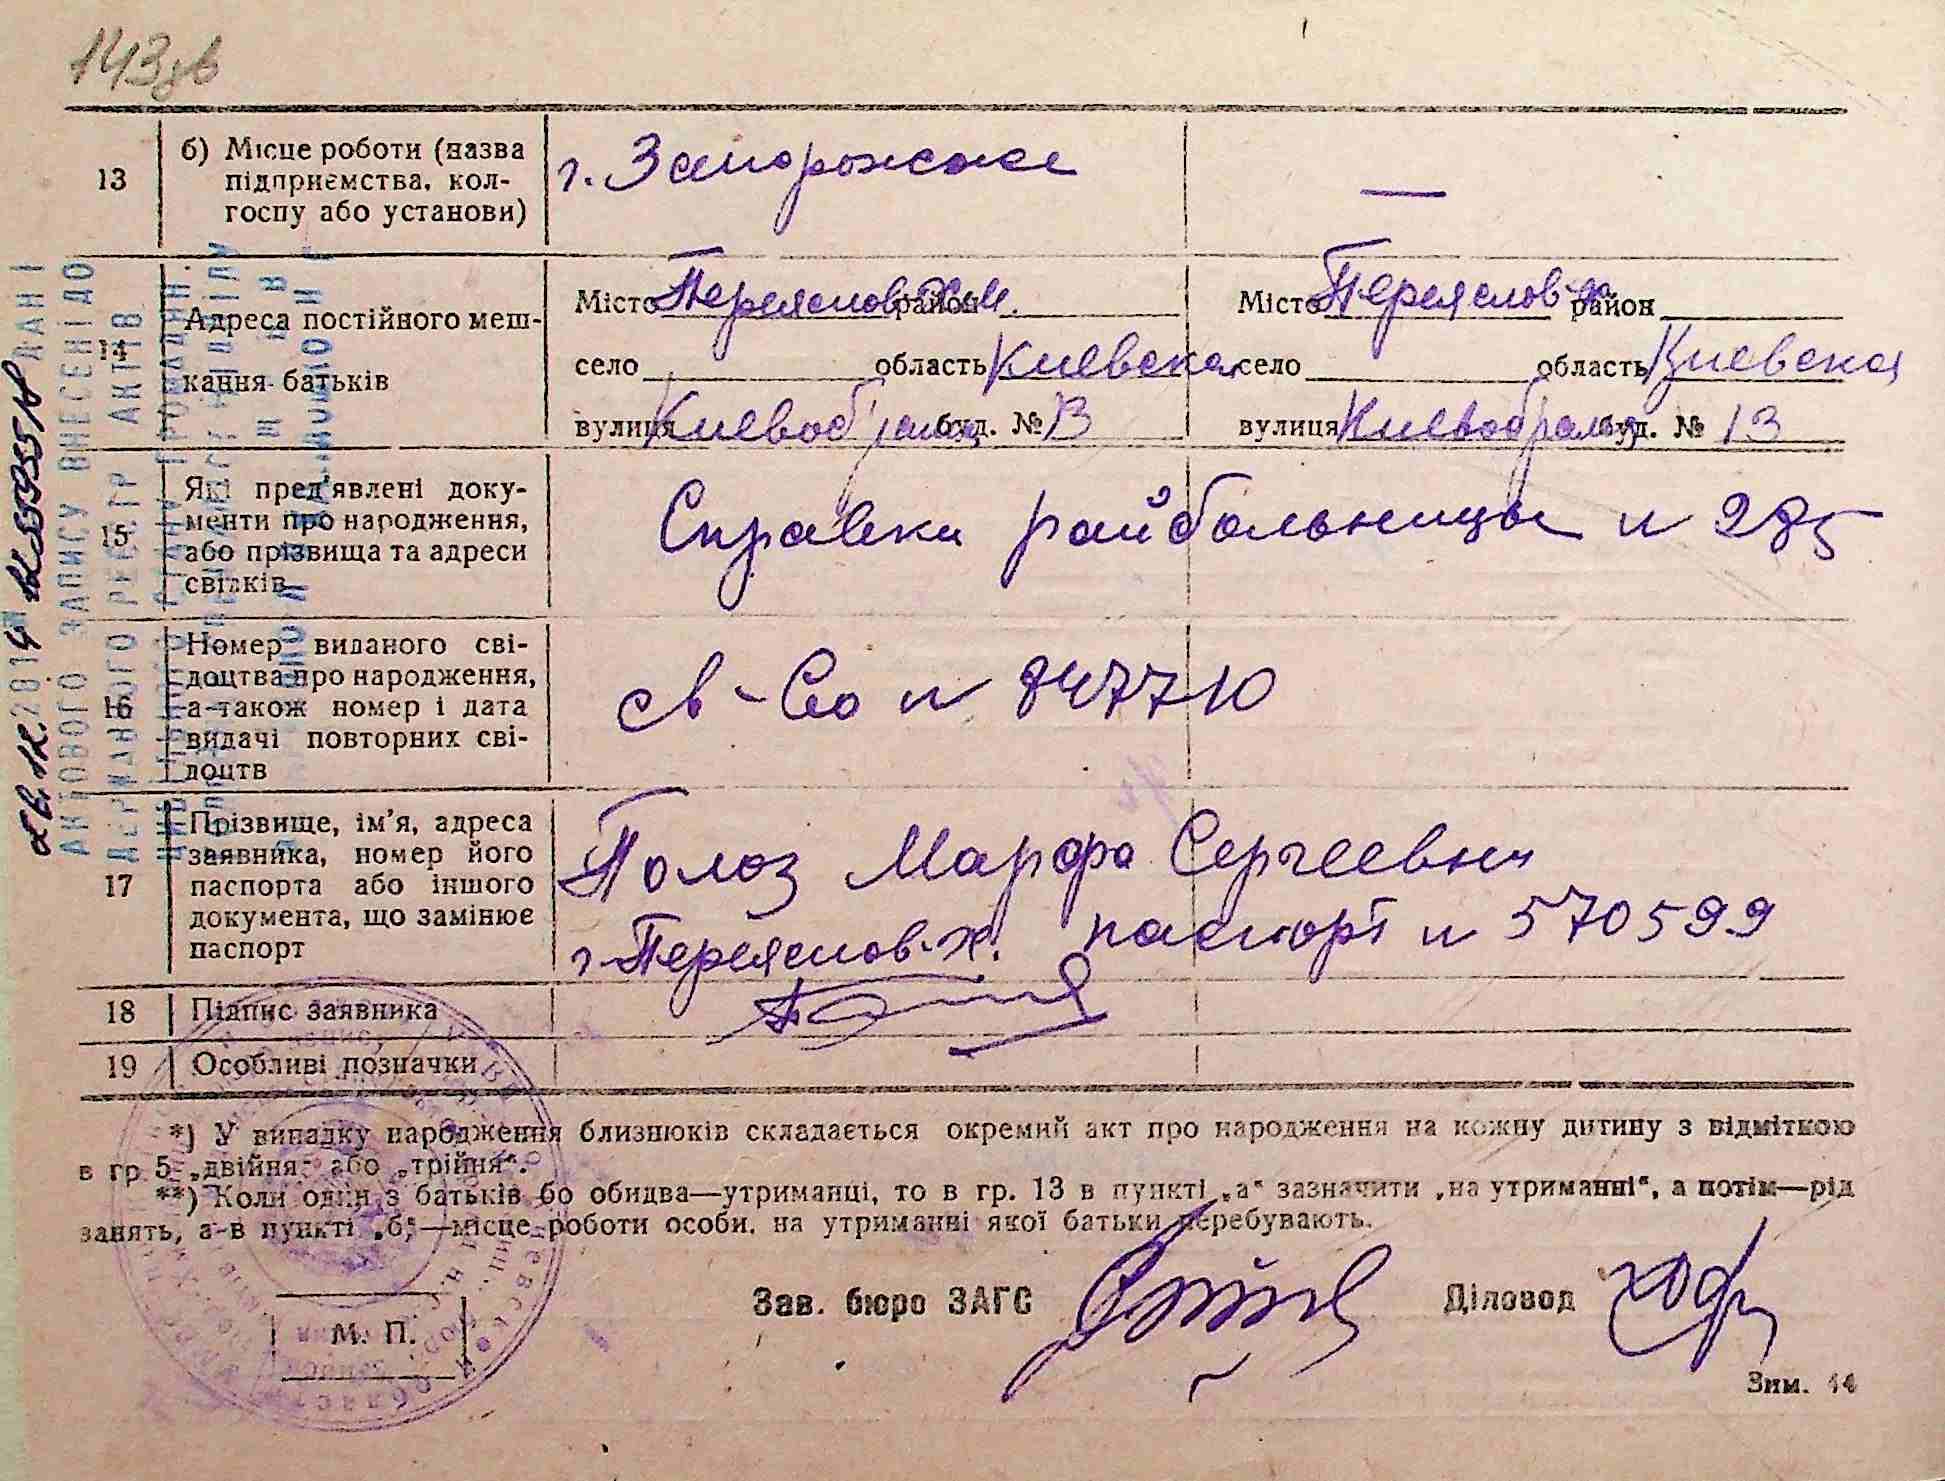 143зв
13
б) Місце роботи (назва
підприємства, кол-
госпу або установи)
г. Запорожже
—
14
Адреса постійного меш-
кання батьків
Місто Переяслов-Хм. район
село область Киевская
вулиця буд. № 13
Місто Переяслов-х район
село область Киевская
вулиця буд. № 13
15
Які пред'явлені доку-
менти про народження,
або прізвища та адреси
свідків
Справка райбольницы № 285
16
Номер виданого сві-
доцтва про народження,
а також номер і дата
видачі повторних сві-
доцтв
св-во № 847710
17
Прізвище, ім'я, адреса
заявника, номер його
паспорта або іншого
документа, що замінює
паспорт
Полоз Марфа Сергеевна
г. Переяслов-х. паспорт № 570599
18
Підпис заявника
19
Особливі позначки
*) У випадку народження близнюків складається окремий акт про народження на кожну дитину з відміткою
в гр. 5 „двійня“ або „трійня“.
**) Коли один з батьків бо обидва—утриманці, то в гр. 13 в пункті „а“ зазначити „на утриманні“, а потім—рід
занять, а в пункті „б“—місце роботи особи, на утриманні якої батьки перебувають.
М. П.
Зав. бюро ЗАГС
Діловод
Зим. 14
ДАНІ
АКТОВОГО ЗАПИСУ ВНЕСЕНІ ДО
ДЕРЖАВНОГО РЕЄСТР АКТІВ